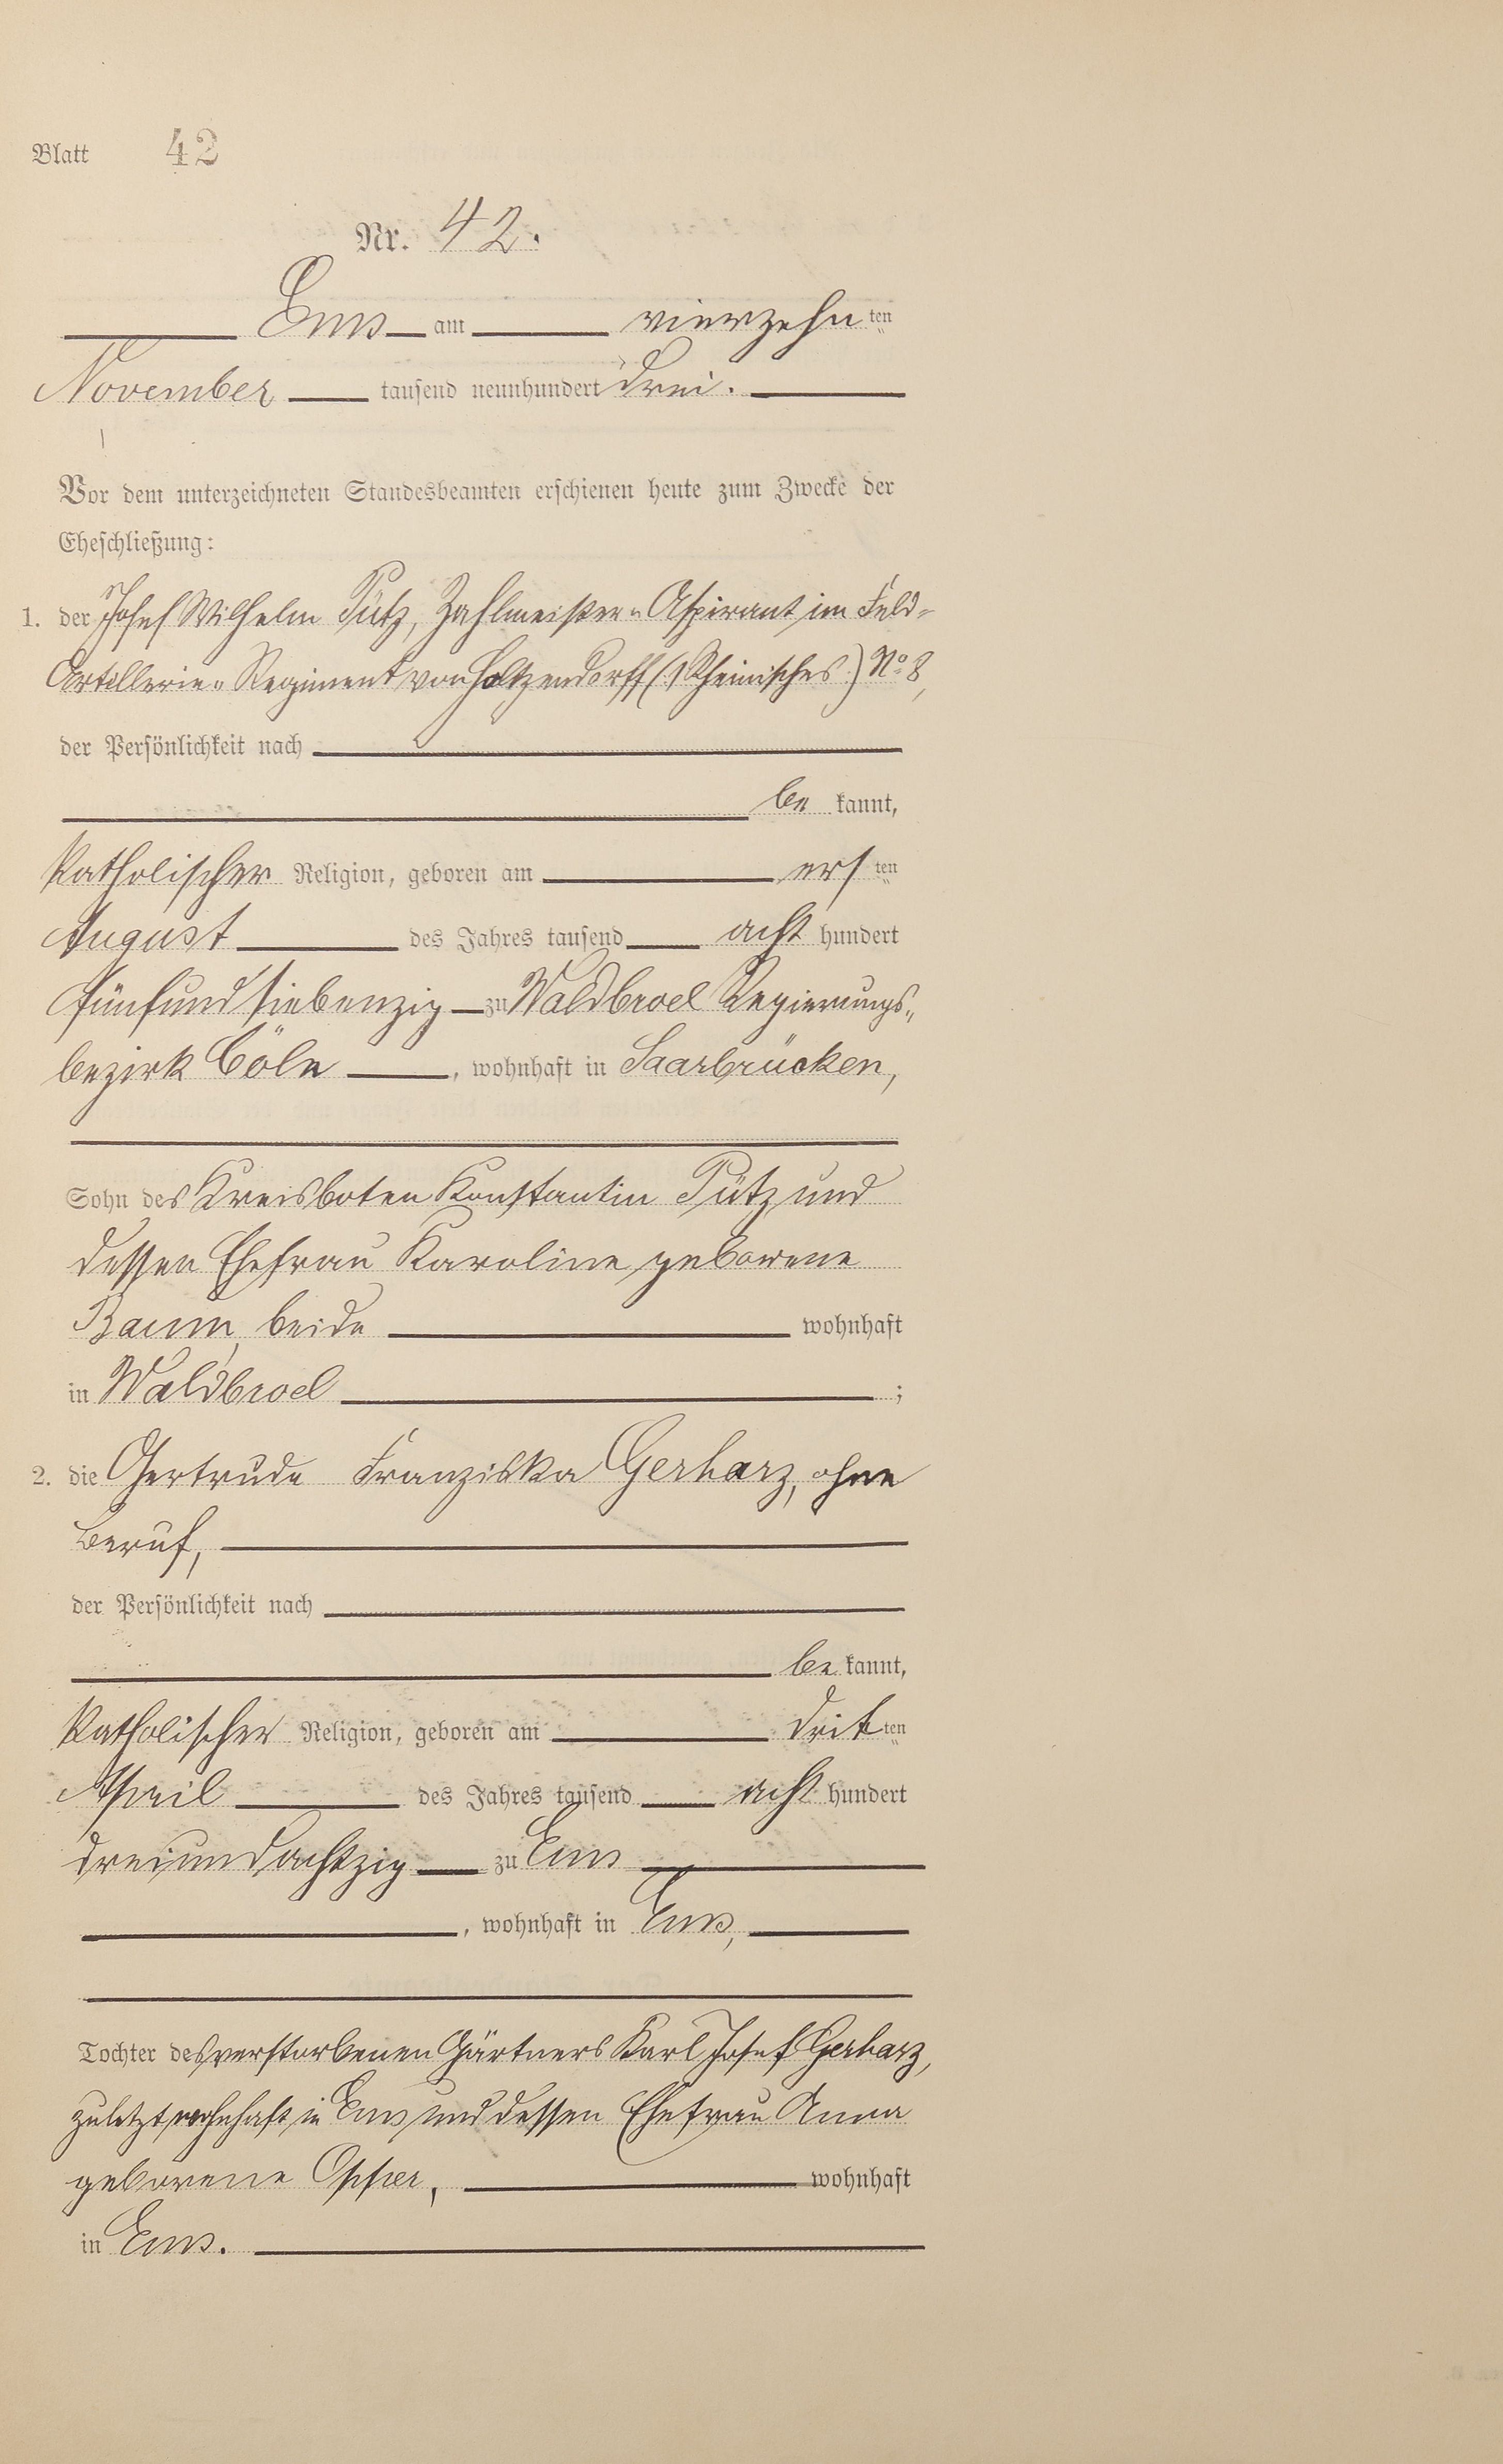 Blatt 42
Nr. 42.
Ems am vierzehn ten
November tausend neunhundert drei.
Vor dem unterzeichneten Standesbeamten erschienen heute zum Zwecke der
Eheschließung:
1. der Josef Wilhelm Pütz, Zahlmeister-Aspirant im Feld-
Artillerie-Regiment von Holtzendorff (1 Rheinisches) No 8,
der Persönlichkeit nach
be kannt,
katholischer Religion, geboren am ers ten
August des Jahres tausend acht hundert
fünfundsiebenzig zu Waldbroel Regierungs-
bezirk Cöln, wohnhaft in Saarbrücken,
Sohn des Kreisboten Konstantin Pütz und
dessen Ehefrau Karoline geborene
Baum, beide wohnhaft
in Waldbroel ;
2. die Gertrude Franziska Gerharz, ohne
Beruf,
der Persönlichkeit nach
be kannt,
katholischer Religion, geboren am drit ten
April des Jahres tausend acht hundert
dreiundachtzig zu Ems
, wohnhaft in Ems,
Tochter des verstorbenen Gärtners Karl Josef Gerharz,
zuletzt wohnhaft in Ems und dessen Ehefrau Anna
geborene Opper, wohnhaft
in Ems.